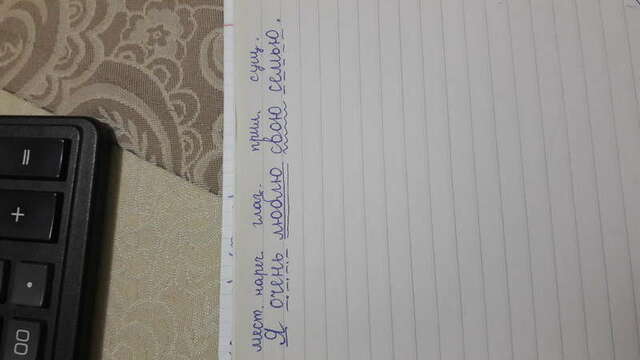 мест. нареч. глаг. прил. сущ.
Я очень люблю свою семью.
=
+
.
00